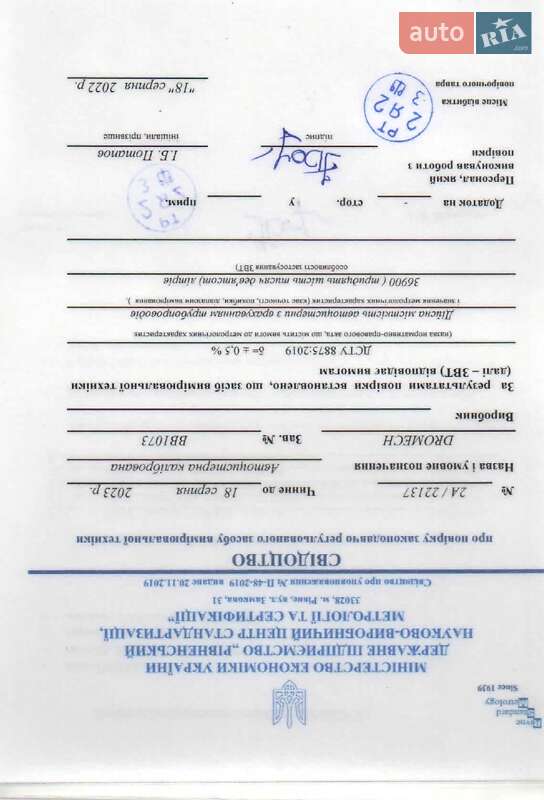 Rivne
Standard
Metrology
Since 1939
МІНІСТЕРСТВО ЕКОНОМІКИ УКРАЇНИ
ДЕРЖАВНЕ ПІДПРИЄМСТВО „РІВНЕНСЬКИЙ
НАУКОВО-ВИРОБНИЧИЙ ЦЕНТР СТАНДАРТИЗАЦІЇ,
МЕТРОЛОГІЇ ТА СЕРТИФІКАЦІЇ”
33028, м. Рівне, вул. Замкова, 31
Свідоцтво про уповноваження № П-48-2019 видане 20.11.2019
СВІДОЦТВО
про повірку законодавчо регульованого засобу вимірювальної техніки
№ 2А / 22137 Чинне до 18 серпня 2023 р.
Назва і умовне позначення Автоцистерна калібрована
DROMECH Зав. № BB1073
Виробник
За результатами повірки встановлено, що засіб вимірювальної техніки
(далі – ЗВТ) відповідає вимогам
ДСТУ 8875:2019 δ= ± 0,5 %
(назва нормативно-правового акта, що містить вимоги до метрологічних характеристик
Дійсна місткість автоцистерни з врахуванням трубопроводів
і значення метрологічних характеристик (клас точності, похибки, діапазони вимірювання ),
36900 ( тридцять шість тисяч дев'ятсот) літрів
особливості застосування ЗВТ)
Додаток на - стор. у прим.
Персонал, який
виконував роботи з
повірки
підпис
І.Б. Потапов
ініціали, прізвище
Місце відбитка
повірочного тавра
РТ
2 Я 2
3
"18" серпня 2022 р.
auto RIA .com